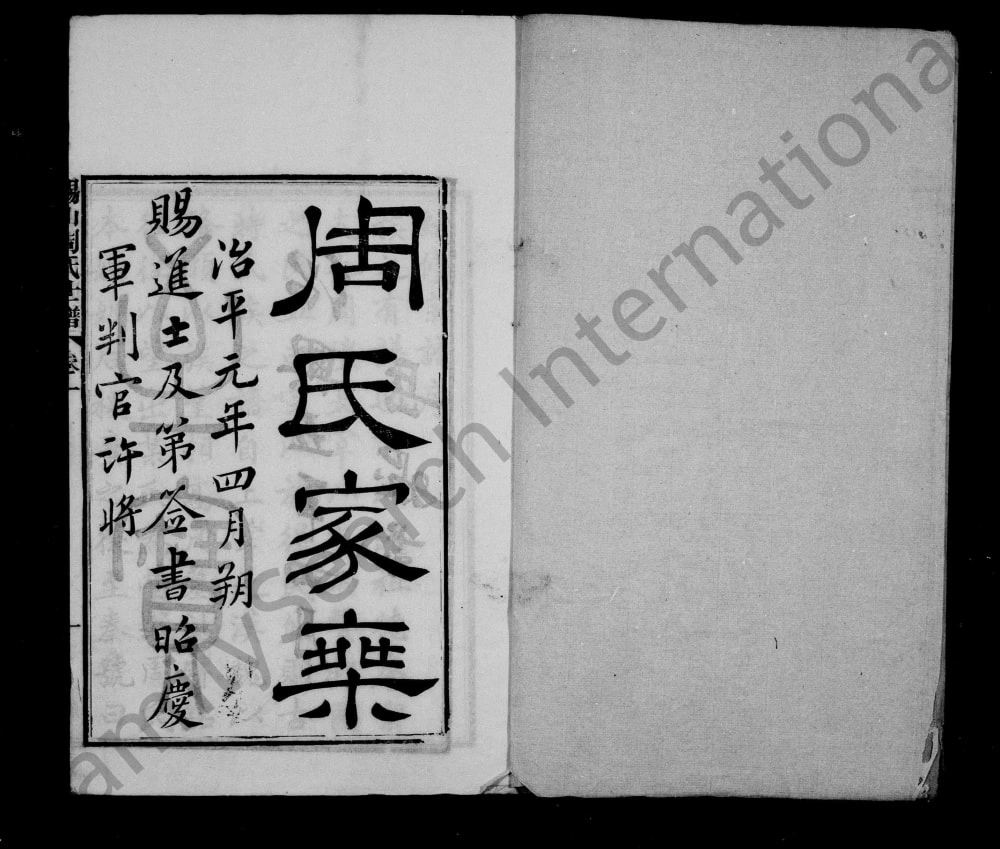 周氏家葉
治平元年四月朔
賜進士及第簽書昭慶
軍判官許將
錫山周氏世譜 卷一
FamilySearch International